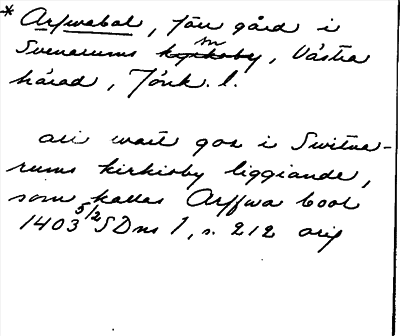 * Arfwabol, förr gård i
Svenarums kyrkoby sn, Västra
härad, Jönk. l.
all wart goz i Switna-
rums kirkioby liggiande,
som kallas Arffwa bool
1403 5/2 SDns 1, s. 212 orig